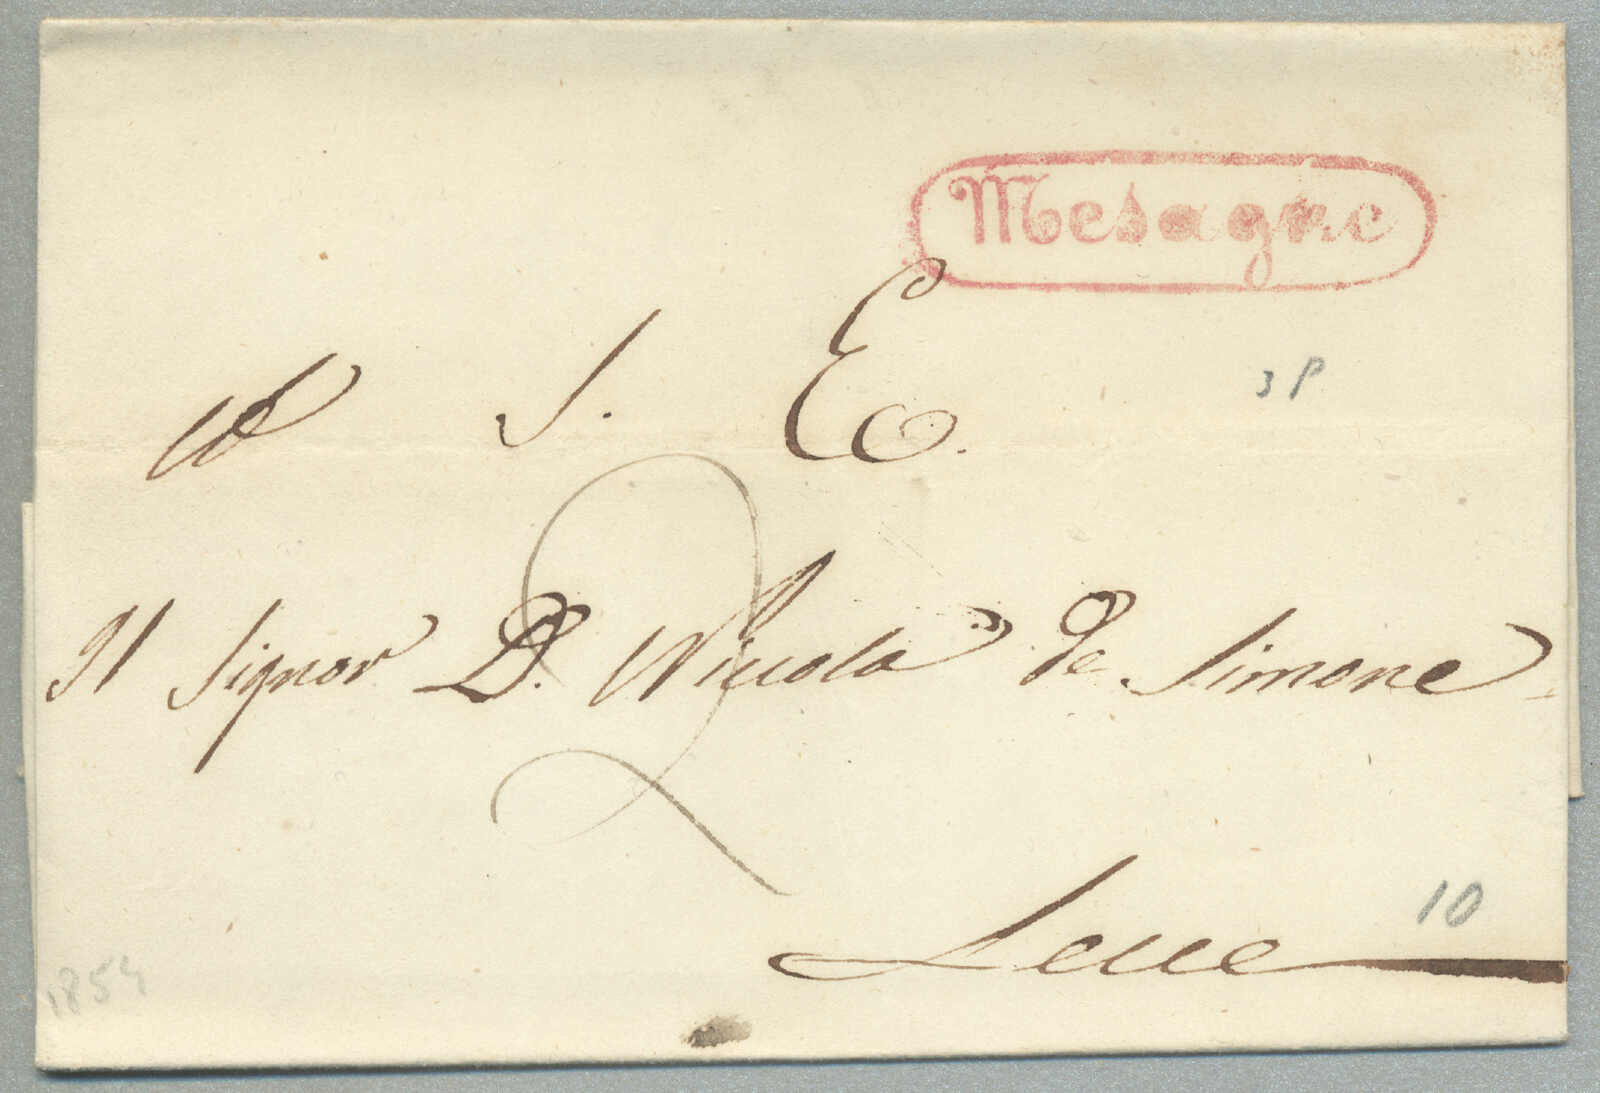 Mesagne
A S. E.
3 P
2
Il Signor D. Niccola de Simone
10
Lecce
1854